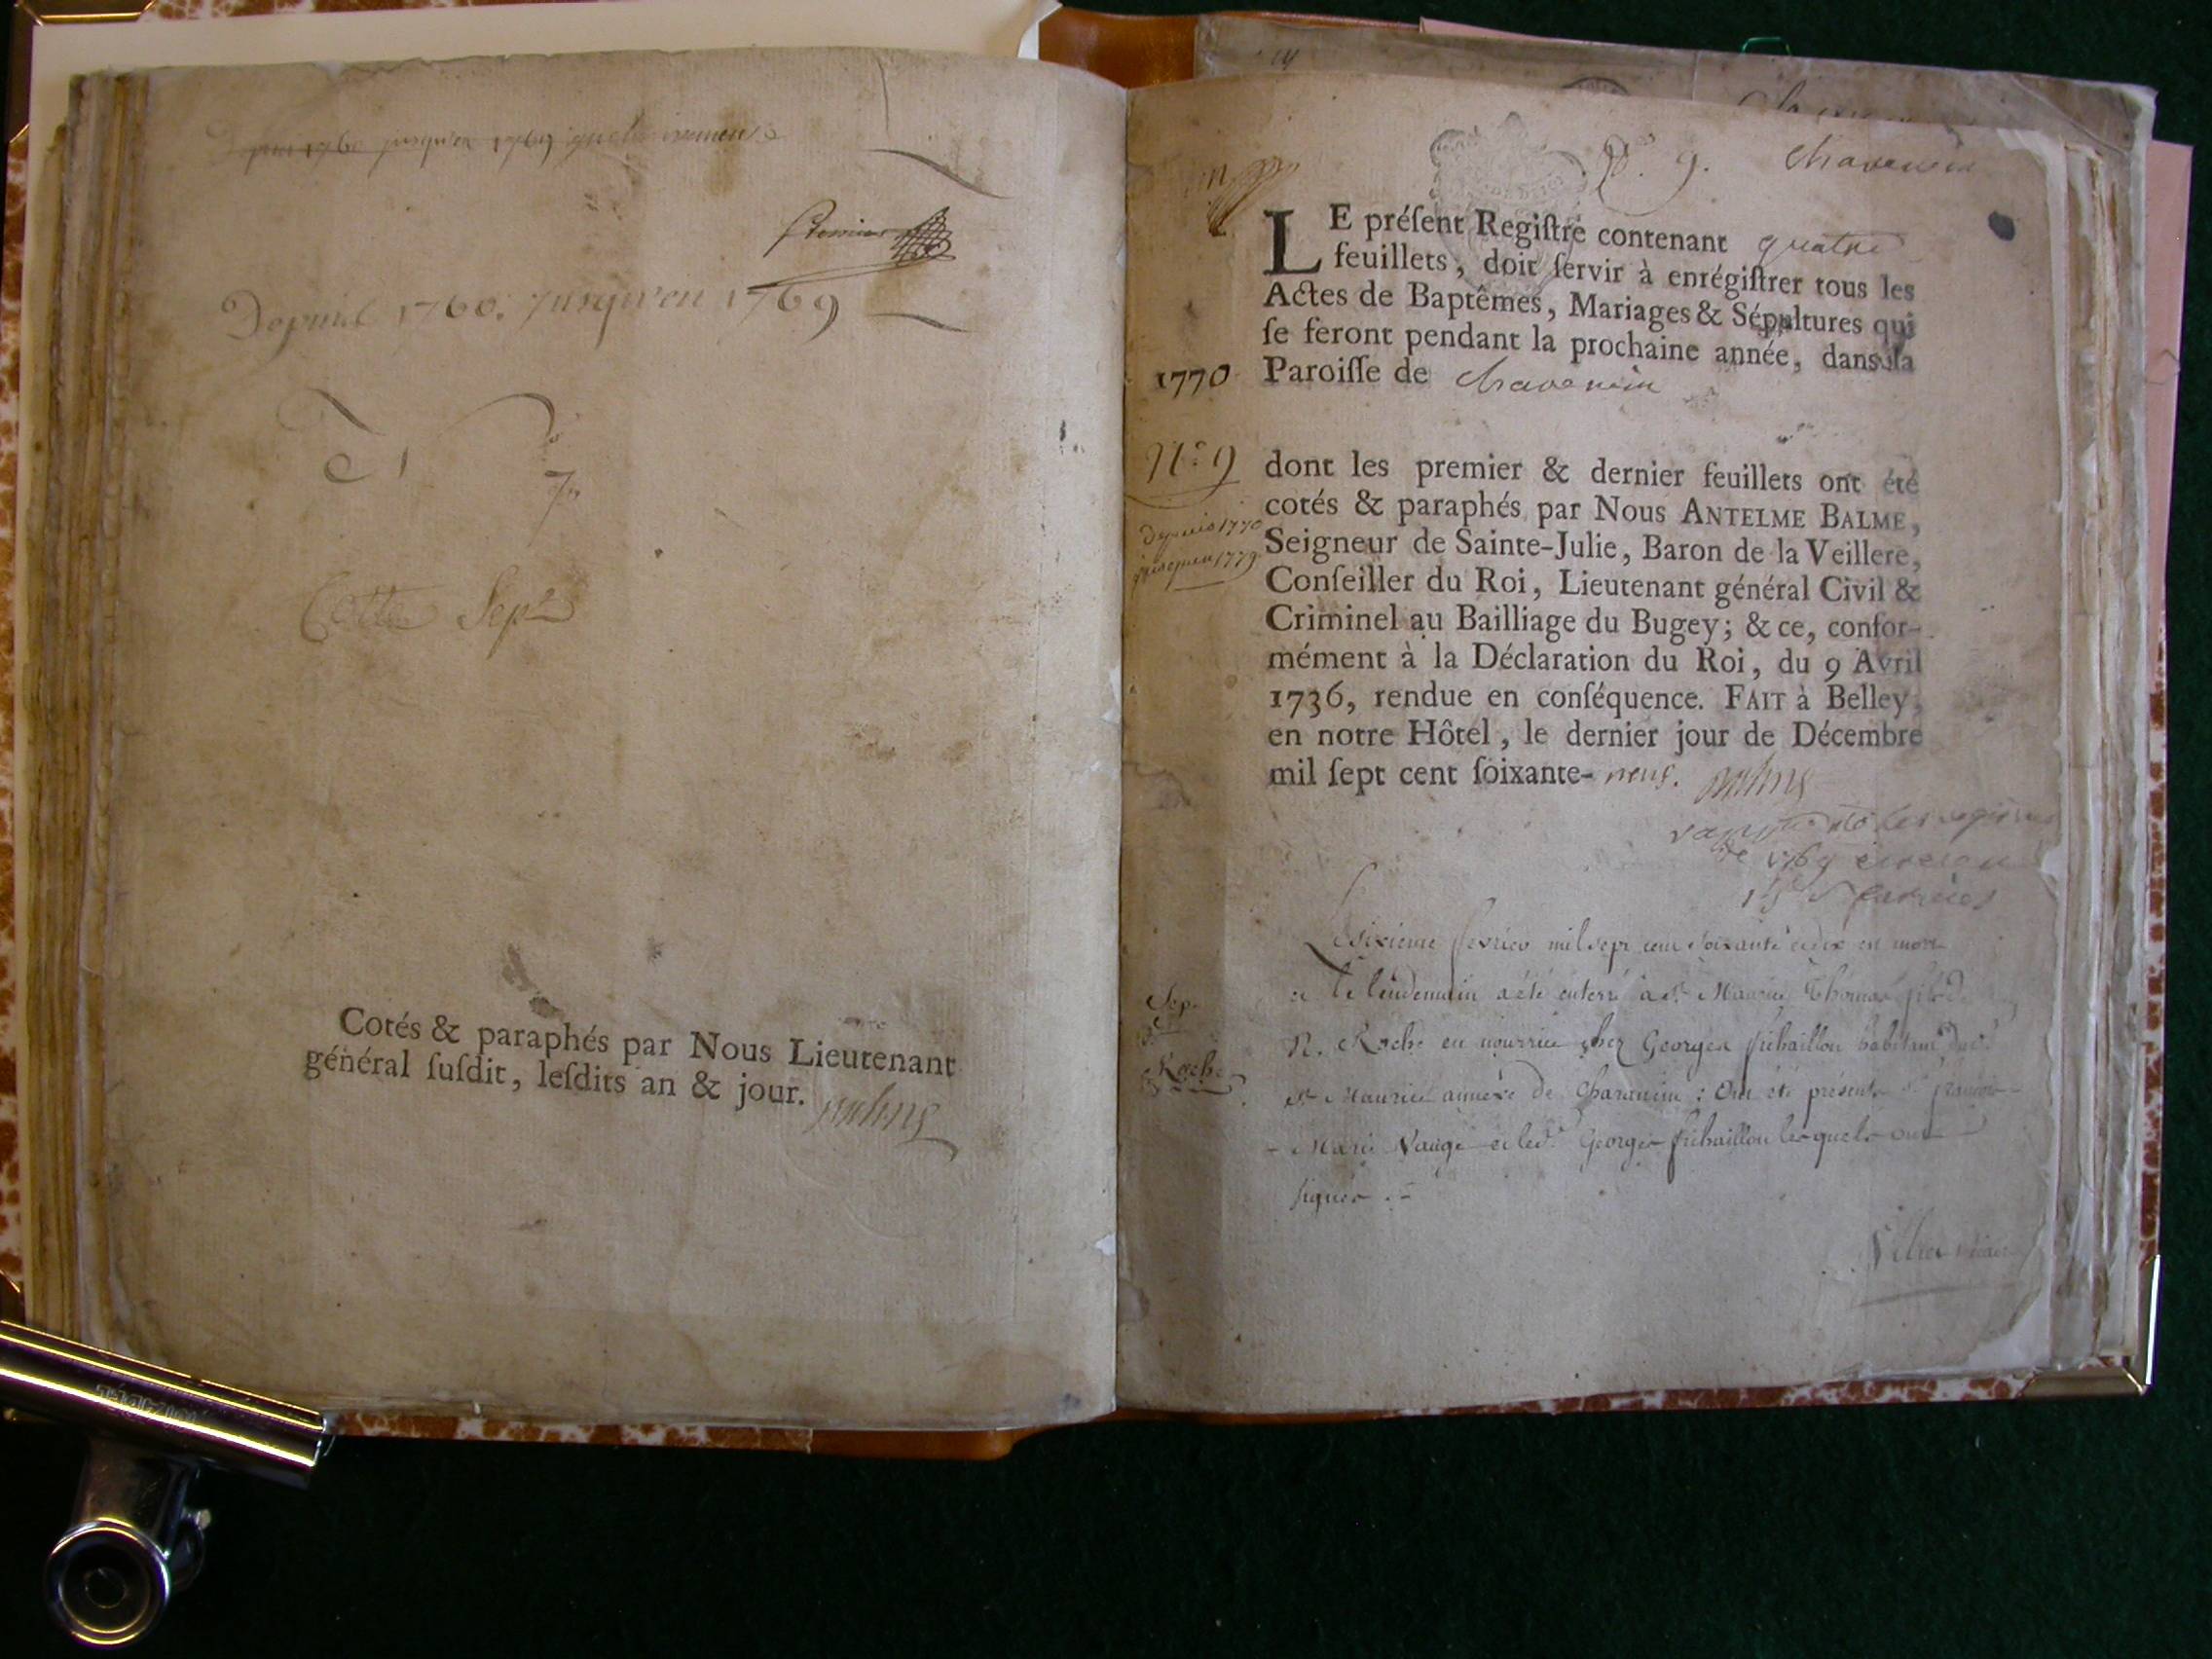 jusqu'en 1769
Depuis 1760. Jusqu'en 1769
Cotte Sept
Cotés & paraphés par Nous Lieutenant
général ſuſdit, leſdits an & jour.
Balme
9. Chavenein
LE préſent Regiſtre contenant quatre
feuillets, doit ſervir à enrégiſtrer tous les
Actes de Baptêmes, Mariages & Sépultures qui
ſe feront pendant la prochaine année, dans la
1770 Paroiſſe de Chavenein
N.o 9
depuis 1770
jusqu'en 1779
dont les premier & dernier feuillets ont été
cotés & paraphés par Nous ANTELME BALME,
Seigneur de Sainte-Julie, Baron de la Veillere,
Conſeiller du Roi, Lieutenant général Civil &
Criminel au Bailliage du Bugey; & ce, confor-
mément à la Déclaration du Roi, du 9 Avril
1736, rendue en conſéquence. FAIT à Belley,
en notre Hôtel, le dernier jour de Décembre
mil ſept cent ſoixante-neuf. Balme
de 1769
Le sixieme fevrier mil sept cent soixante et dix est mort
et le lendemain a été enterré a st Maurice Thomas fils de
Sep.
Roche
N. Roche en nourrice chez Georges habitant dud.
st Maurice annexe de : Ont été présents sr françois
- Marie Naugé et led. Georges lesquels ont
signés . -